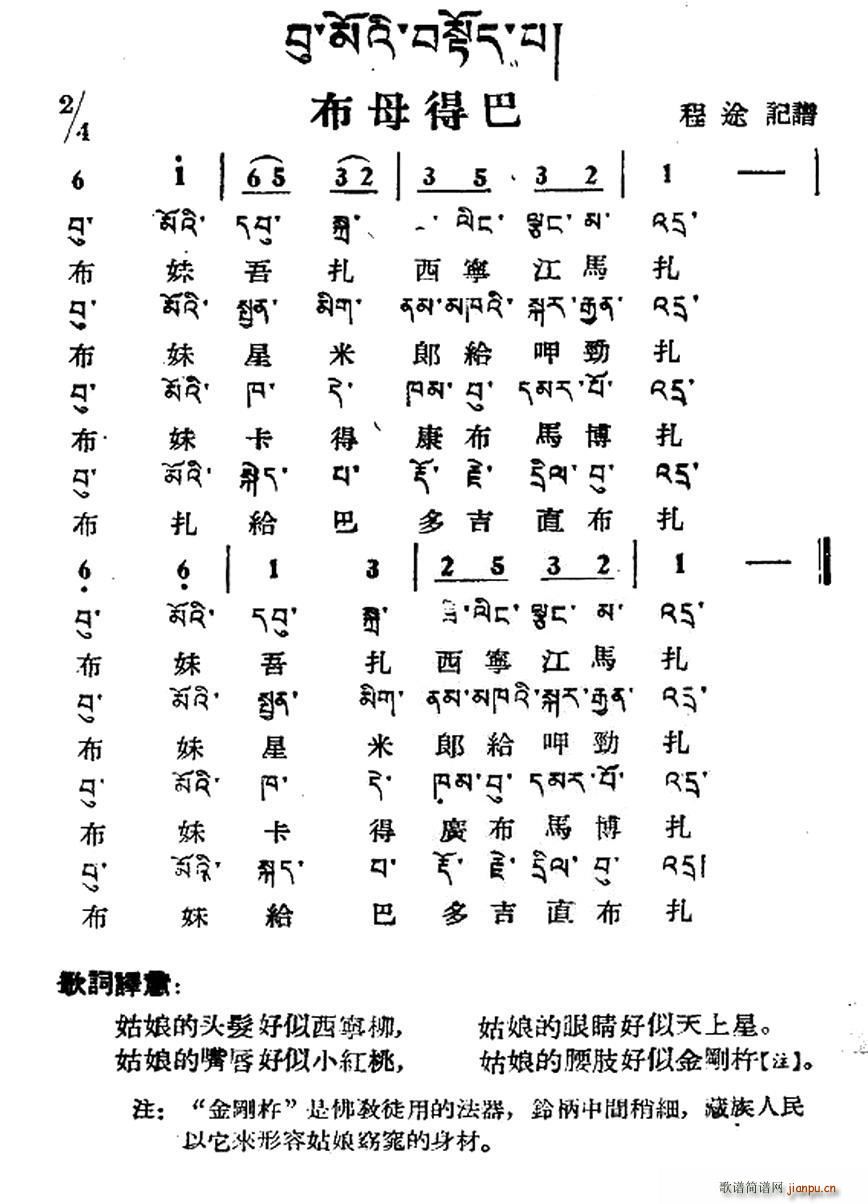 བུ་མོའི་བསྟོད་པ།
布母得巴
2/4
程途 記譜
6 i | 65 32 | 3 5 3 2 | 1 — |
བུ་ མོའི་ དབུ་ སྐྲ་ ལིང་ ལྕང་ མ་ འདྲ་
布 妹 吾 扎 西 寧 江 馬 扎
བུ་ མོའི་ སྤྱན་ མིག་ ནམ་མཁའི་ སྐར་རྒྱན་ འདྲ་
布 妹 星 米 郞 給 呷 勁 扎
བུ་ མོའི་ ཁ་ དེ་ ཁམ་བུ་ དམར་པོ་ འདྲ་
布 妹 卡 得 康 布 馬 博 扎
བུ་ མོའི་ སྐེད་ པ་ རྡོ་ རྗེ་ དྲིལ་ བུ་ འདྲ་
布 扎 給 巴 多 吉 直 布 扎
6 6 | 1 3 | 2 5 3 2 | 1 — ‖
བུ་ མོའི་ དབུ་ སྐྲ་ ལིང་ ལྕང་ མ་ འདྲ་
布 妹 吾 扎 西 寧 江 馬 扎
བུ་ མོའི་ སྤྱན་ མིག་ ནམ་མཁའི་ སྐར་རྒྱན་ འདྲ་
布 妹 星 米 郞 給 呷 勁 扎
བུ་ མོའི་ ཁ་ དེ་ ཁམ་བུ་ དམར་པོ་ འདྲ་
布 妹 卡 得 廣 布 馬 博 扎
བུ་ མོའི་ སྐད་ པ་ རྡོ་ རྗེ་ དྲིལ་ བུ་ འདྲ།
布 妹 給 巴 多 吉 直 布 扎
歌詞譯意：
姑娘的头髮好似西寧柳， 姑娘的眼睛好似天上星。
姑娘的嘴唇好似小紅桃， 姑娘的腰肢好似金剛杵【注】。
注：“金剛杵”是佛敎徒用的法器，鈴柄中間稍細，藏族人民
以它來形容姑娘窈窕的身材。
歌谱简谱网
jianpu.cn